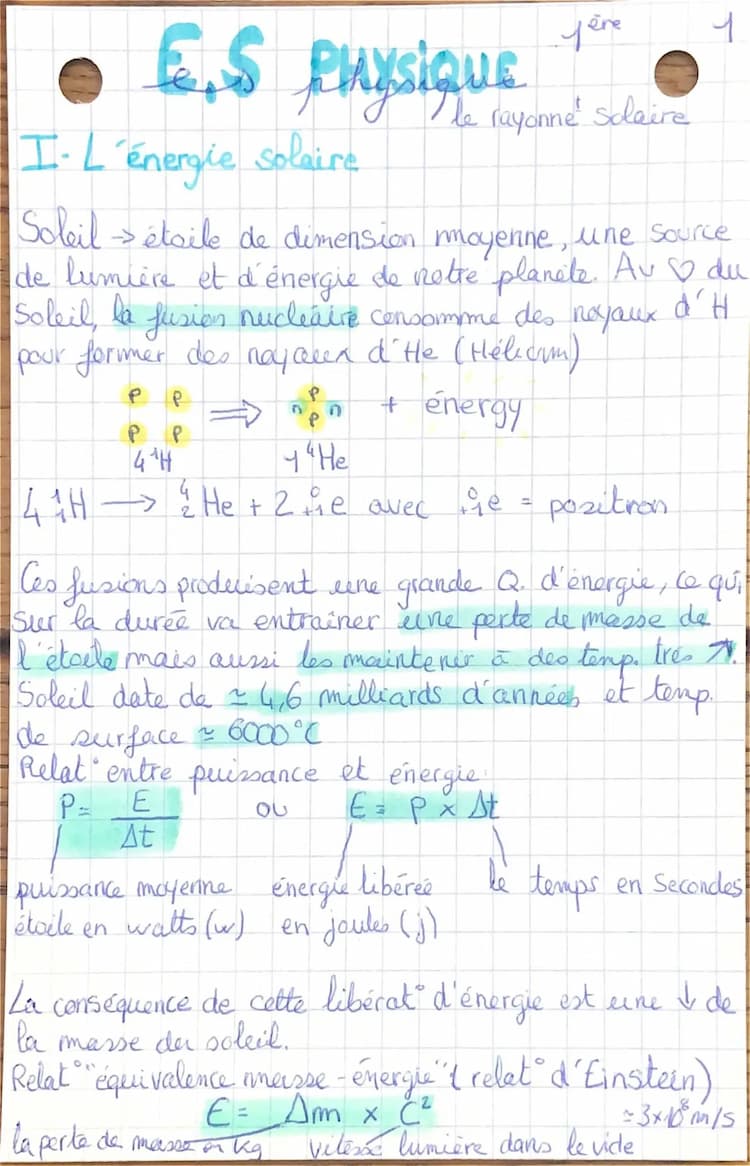 1ère 1
E.S PHYSIQUE
e.s physique
le rayonnet solaire
I- L'énergie solaire
Soleil → étoile de dimension moyenne, une source
de lumière et d'énergie de notre planète. Au ♡ du
Soleil, la fusion nucléaire consomme des noyaux d'H
pour former des noyaux d'He (Hélium)
P P P
P P n n + énergy
P
4 ¹H 1 ⁴He
4 ¹₁H → ⁴₂He + 2 ⁰₊₁e avec ⁰₊₁e = pozitron
Ces fusions produisent une grande Q. d'énergie, ce qui,
sur la durée va entraîner une perte de masse de
l'étoile mais aussi les maintenir à des temp. très ↗.
Soleil date de ≃ 4,6 milliards d'années et temp.
de surface ≃ 6000°C
Relat° entre puissance et énergie:
P = E/Δt ou E = P x Δt
puissance moyenne énergie libérée le temps en Secondes
étoile en watts (w) en joules (j)
La conséquence de cette libérat° d'énergie est une ↓ de
la masse du soleil.
Relat° "équivalence masse-énergie" (relat° d'Einstein)
E = Δm x C² ≃ 3x10⁸ m/s
la perte de masse en kg vitesse lumière dans le vide